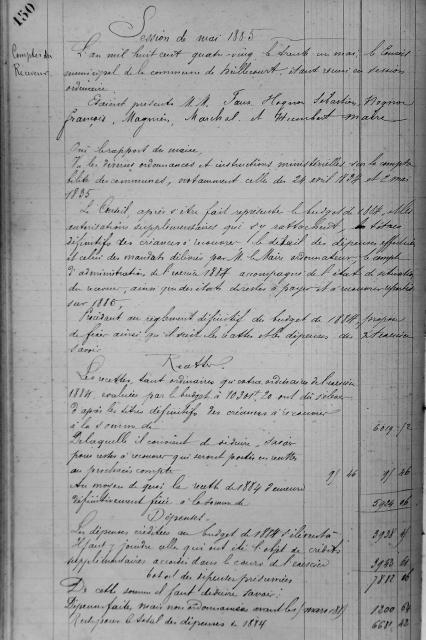 150
Session de mai 1885
Comptes du
Receveur
L'an mil huit cent quatre vingt le trente un mai, le Conseil
municipal de la commune de étant réuni en session
ordinaire
Étaient présents M.M. Hognon Sébastien, Hognon
François, Magnien, Marchal et Humbert maire
Ouï le rapport du maire,
Vu les diverses ordonnances et instructions ministérielles sur la compta
bilité des communes, notamment celle du 24 avril 1834 et 2 mai
1835
Le Conseil, après s'être fait représenter le budget de 1884, et les
autorisations supplémentaires qui s'y rattachent, les titres
définitifs des créances à recouvrer, le détail des dépenses effectuées
et celui des mandats délivrés par M. le Maire ordonnateur, le compte
d'administration de l'exercice 1884 accompagné de l'état de situation
du receveur, ainsi que des états de restes à payer et à recouvrer reportés
sur 1885,
Procédant au règlement définitif du budget de 1884, propose
de fixer ainsi qu'il suit les recettes et les dépenses de l'exercice
savoir
Recettes.
Les recettes, tant ordinaires qu'extraordinaires de l'exercice
1884, évaluées par le budget à 20 ont dû s'élever
d'après les titres définitifs des créances à recouvrer
à la somme de 6019
De laquelle il convient de déduire, savoir
pour restes à recouvrer qui seront portés en recettes
au prochain compte 9 46 9 46
Au moyen de quoi la recette de 1884 demeure
définitivement fixée à la somme de 06
Dépenses.
Les dépenses créditées au budget de 1884 s'élèvent à
Il faut y joindre celles qui ont été l'objet de crédits
supplémentaires accordés dans le cours de l'exercice
total des dépenses présumées
De cette somme il faut déduire savoir:
Dépenses faites, mais non ordonnancées avant le mars 1200 64
Reste pour le total des dépenses de 1884 6681 42